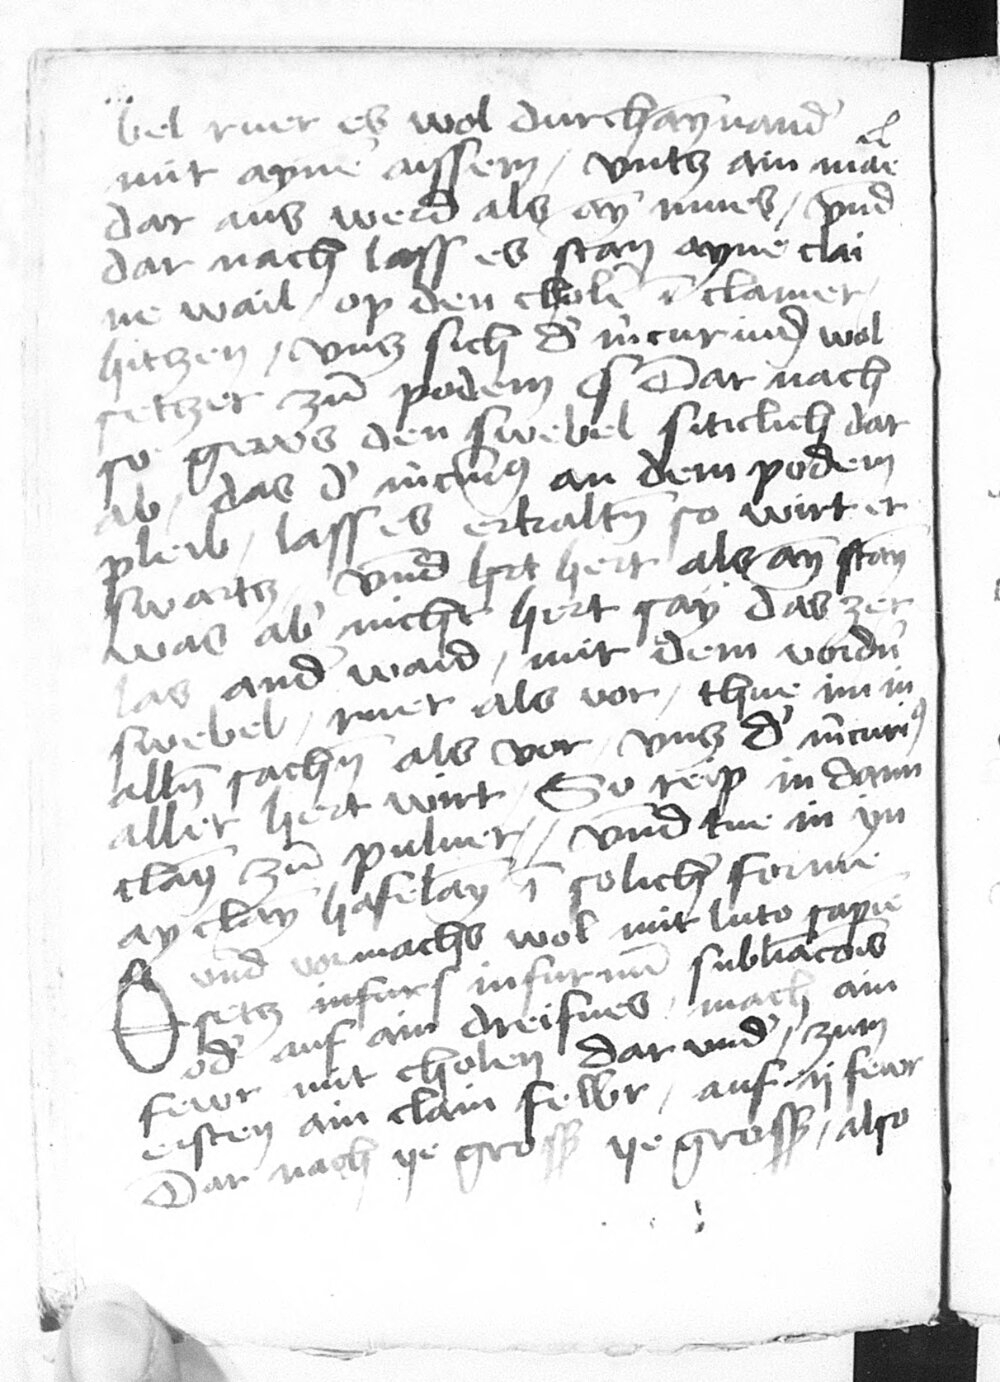 bel ruer es wol durchaÿnand̕
mit ayne̕ aissem / vntz ain mae
dar aus werd als aÿ mues / vnd
dar nach lass es stan ayne clai
ne wail / op den chole̅ i̅ clainer
hitzen / vnz sich d̕ m̅curiuꝰ wol
setzet zu̅ podem Dar nach
so gews den swebel sitichch dar
ab / das d̕ m̅curiꝰ an dem podem
pleib / lass es erkaltn̅ so wirt er
swartz / vnd hert als aÿ stan
was ab̕ nicht hert saÿ das zer
las and̕ waid / mit dem vordn̅
swebel / ruer als vor / thue im in
alln̅ sachn̅ als vor / vnz d̕ m̅curiꝰ
aller hert wirt / So reip in dann
claÿ zu̅ puluer / vnd tue in yn
aÿ claÿ hafelaÿ i̅ solich̕ forme
vnd vormachs wol mit luto sapie̅
setz infurs infurnu̅ sublia̅cois
od̕ auf ain dreifues / mach ain
fewr mit cholen dar vnd̕ / zum
eisten ain clain fewr / auf ij fewr
Dar nach ye gross̕ ye gross̕ / also